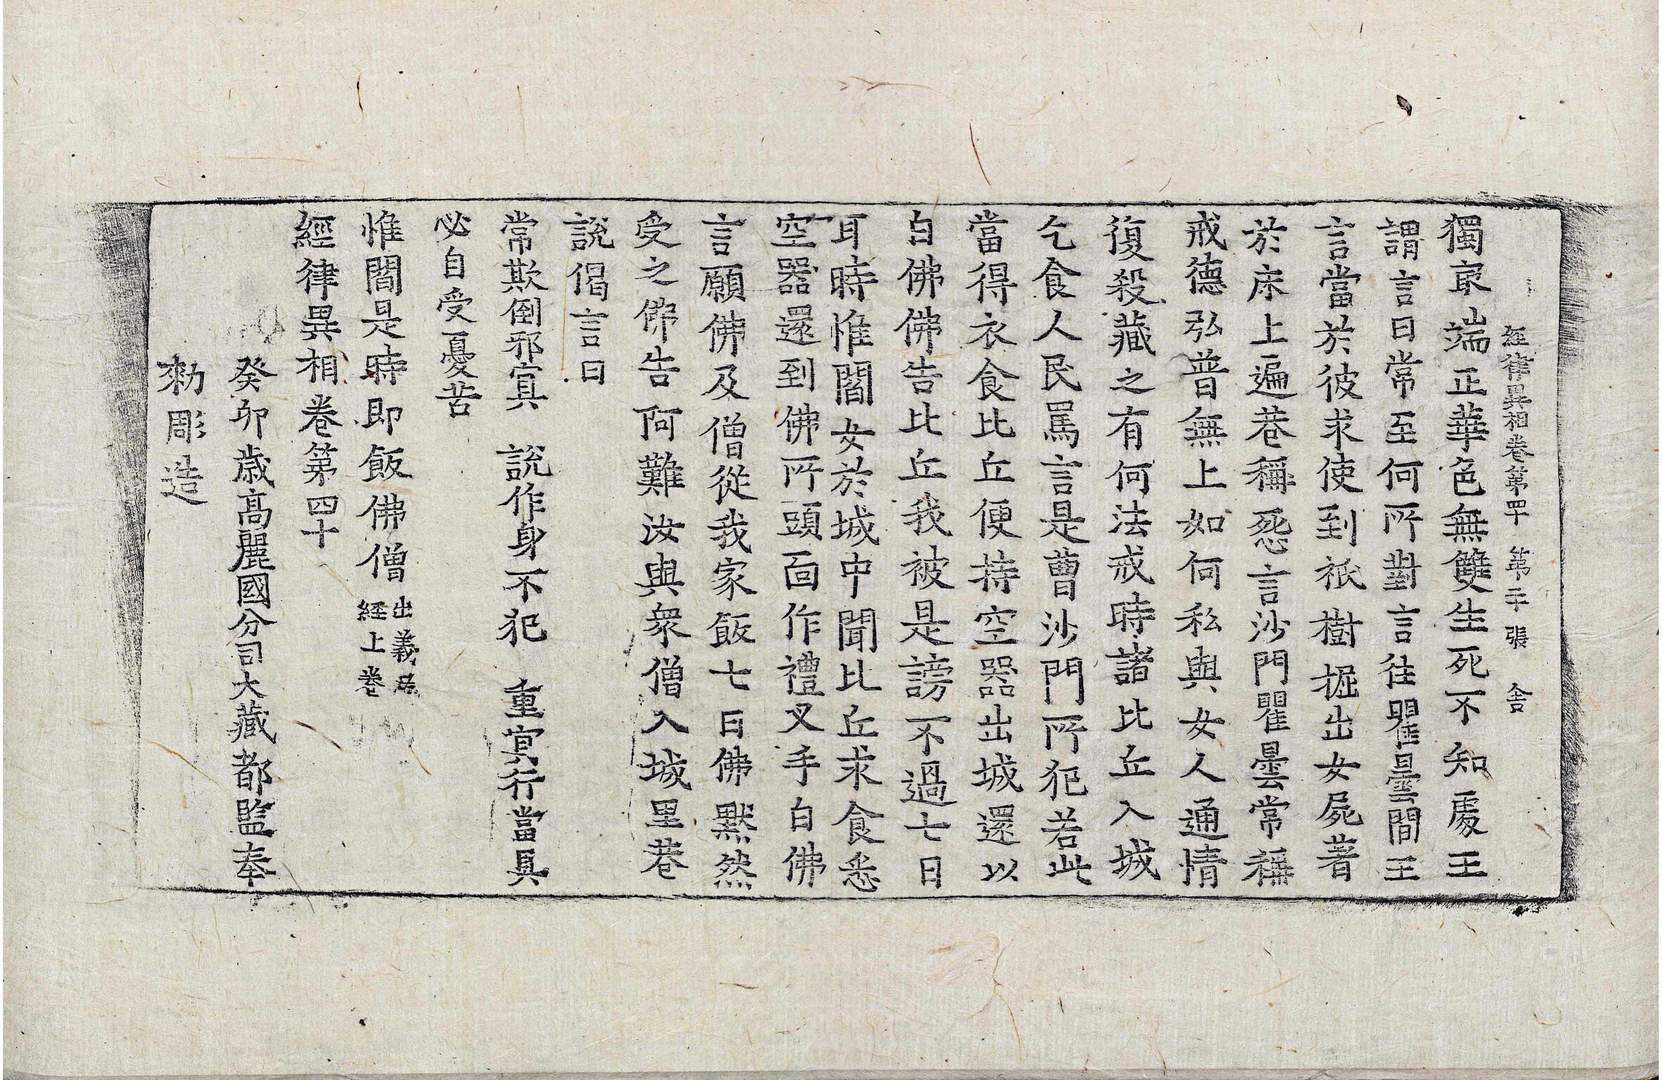 經律異相卷第四十 第二十張 舍
獨冣端正華色無雙生死不知處王
謂言曰常至何所對言往瞿曇間王
言當於彼求使到祇樹掘出女屍著
於床上遍巷稱怨言沙門瞿曇常稱
戒德弘普無上如何私與女人通情
復殺藏之有何法戒時諸比丘入城
乞食人民罵言是曹沙門所犯若此
當得衣食比丘便持空器出城還以
白佛佛告比丘我被是謗不過七日
耳時惟閻女於城中聞比丘求食悉
空器還到佛所頭面作禮叉手白佛
言願佛及僧從我家飯七日佛默然
受之佛告阿難汝與衆僧入城里巷
說偈言曰
常欺倒邪冥 說作身不犯 重冥行當具
必自受憂苦
惟閻是時即飯佛僧 出義足經上卷
經律異相卷第四十
癸卯歲高麗國分司大藏都監奉
勑彫造